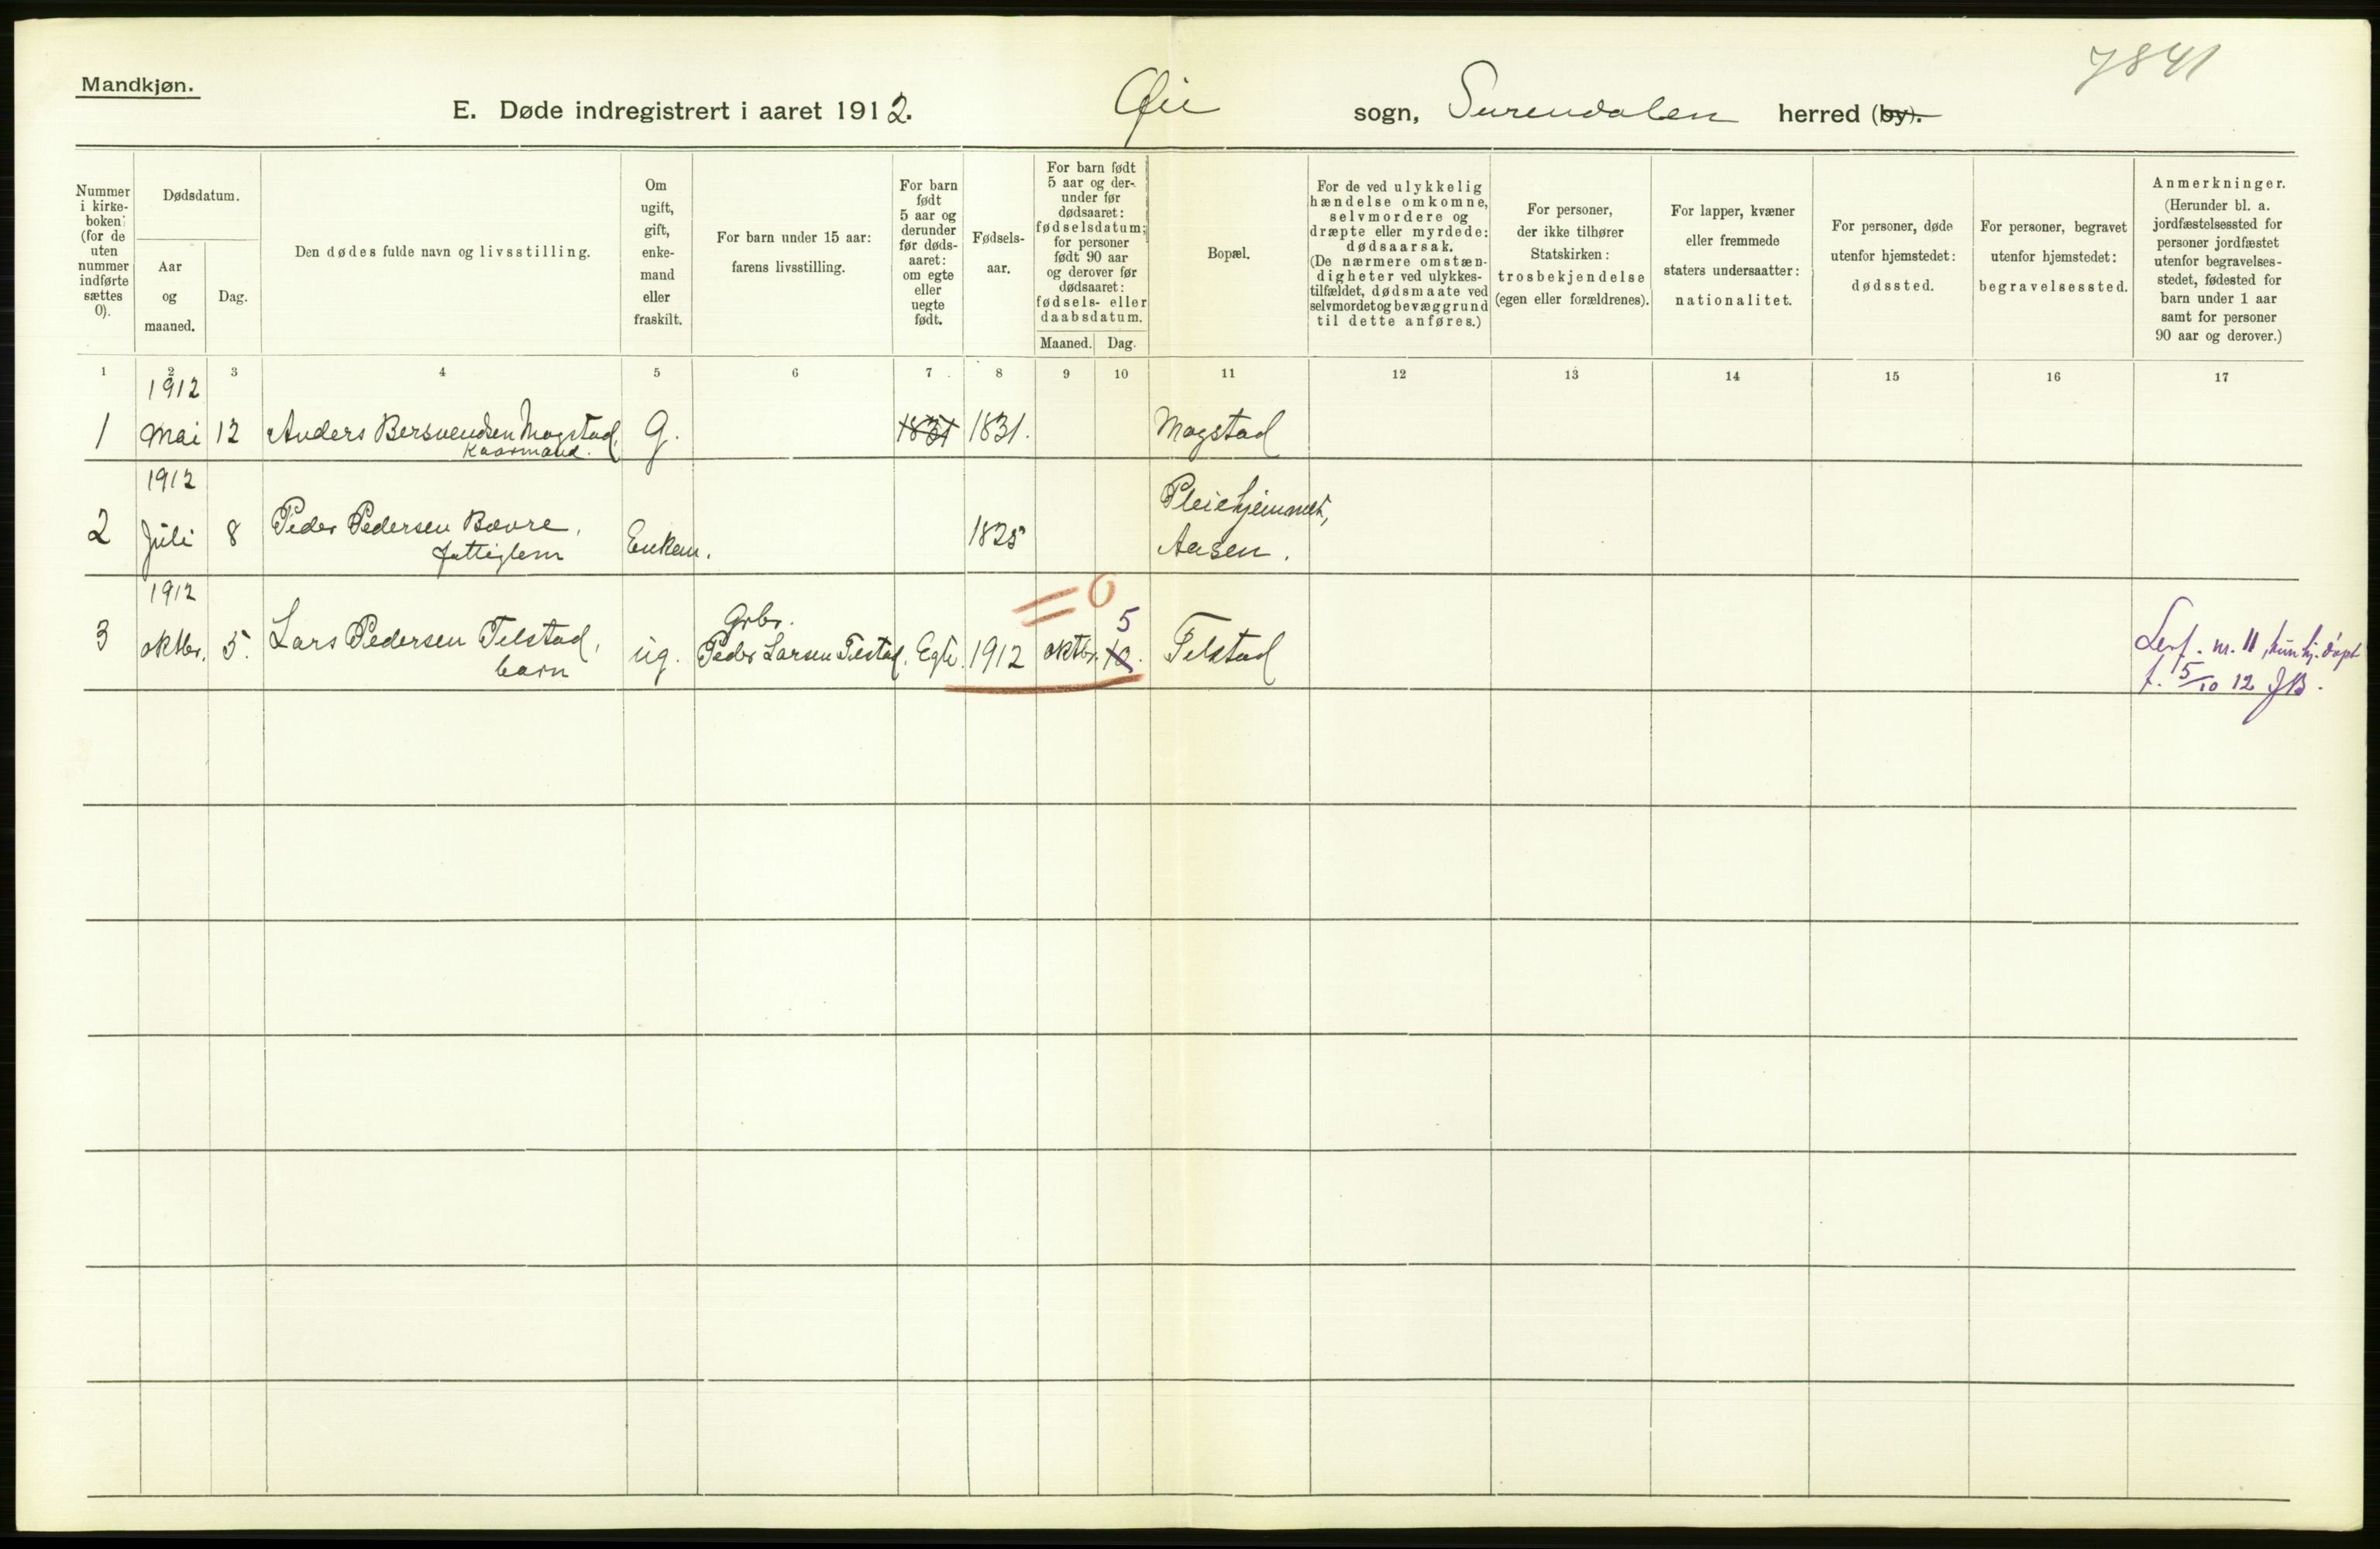 7841
Mandkjøn.
E. Døde indregistrert i aaret 1912. Øie sogn, Surendalen herred (by).
Nummer i kirkeboken (for de uten nummer indførte sættes 0).
Dødsdatum.
Aar og maaned.
Dag.
Den dødes fulde navn og livsstilling.
Om ugift, gift, enkemand eller fraskilt.
For barn under 15 aar: farens livsstilling.
For barn født 5 aar og derunder før dødsaaret: om egte eller uegte født.
Fødselsaar.
For barn født 5 aar og derunder før dødsaaret: fødselsdatum; for personer født 90 aar og derover før dødsaaret: fødsels- eller daabsdatum.
Maaned. Dag.
Bopæl.
For de ved ulykkelig hændelse omkomne, selvmordere og dræpte eller myrdede: dødsaarsak. (De nærmere omstændigheter ved ulykkestilfældet, dødsmaate ved selvmordet og bevæggrund til dette anføres.)
For personer, der ikke tilhører Statskirken: trosbekjendelse (egen eller forældrenes).
For lapper, kvæner eller fremmede staters undersaatter: nationalitet.
For personer, døde utenfor hjemstedet: dødssted.
For personer, begravet utenfor hjemstedet: begravelsessted.
Anmerkninger. (Herunder bl. a. jordfæstelsessted for personer jordfæstet utenfor begravelsesstedet, fødested for barn under 1 aar samt for personer 90 aar og derover.)
1 2 3 4 5 6 7 8 9 10 11 12 13 14 15 16 17
1912
1 Mai 12 Anders Bersvendsen Mogstad, G. 1831 1831. Mogstad
Kaarmand.
1912
Pleiehjemmet,
2 Juli 8 Peder Pedersen Bævre, Enkem. 1825 Aasen.
fattiglem
1912
= 0
Grbr. 5
3 oktbr. 5. Lars Pedersen Telstad, ug. Peder Larsen Telstad. Egte. 1912 oktbr. 10. Telstad nr. 11, kun hj. døpt
barn
f. 5/10 12 JB.